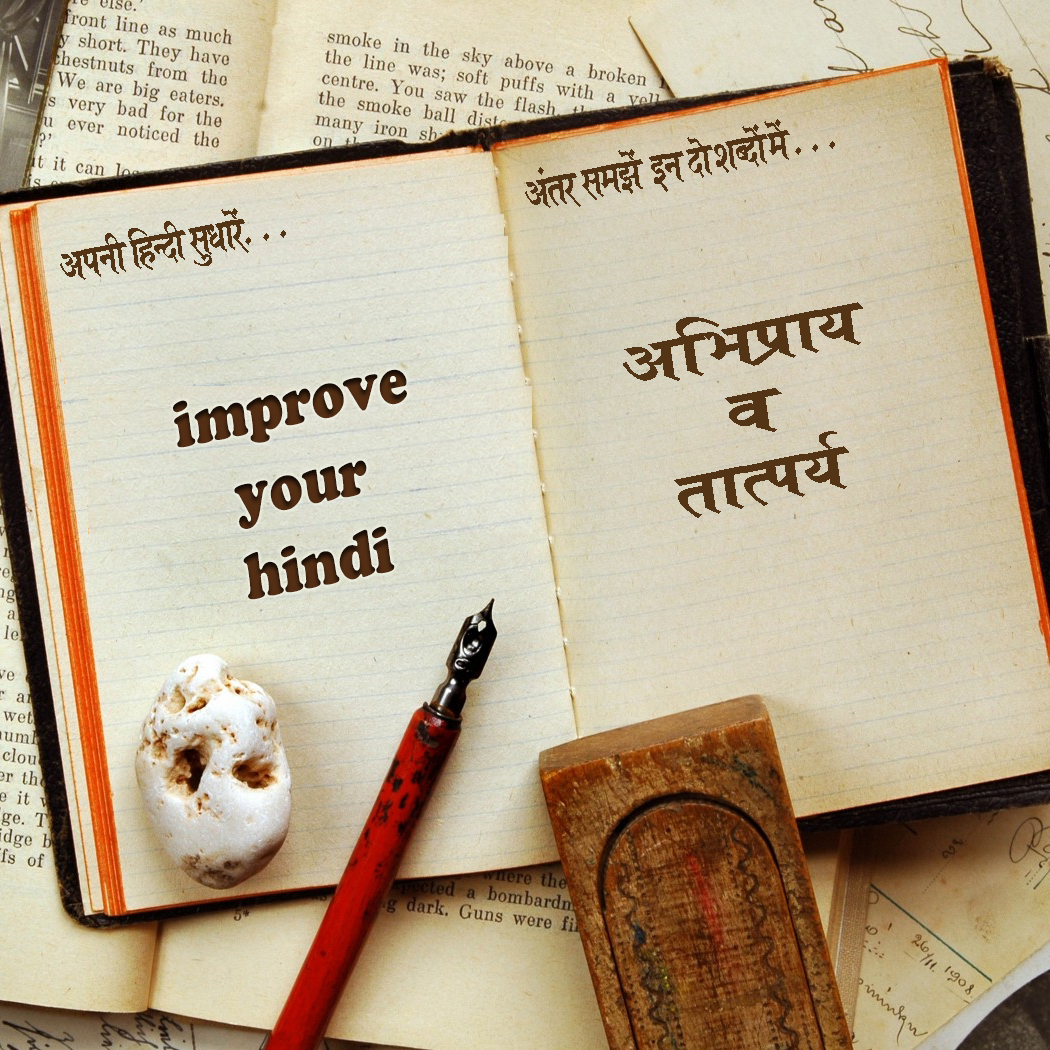 re else.'
front line as much
y short. They have
chestnuts from the
We are big eaters.
s very bad for the
u ever noticed the
?'
smoke in the sky above a broken
the line was; soft puffs with a
centre. You saw the flash,
the smoke ball
many iron
on
अपनी हिन्दी सुधारें. . .
improve
your
hindi
अंतर समझें इन दो शब्दों में . . .
अभिप्राय
व
तात्पर्य
where the
a bombardm
g dark. Guns were
26/11. 1908.